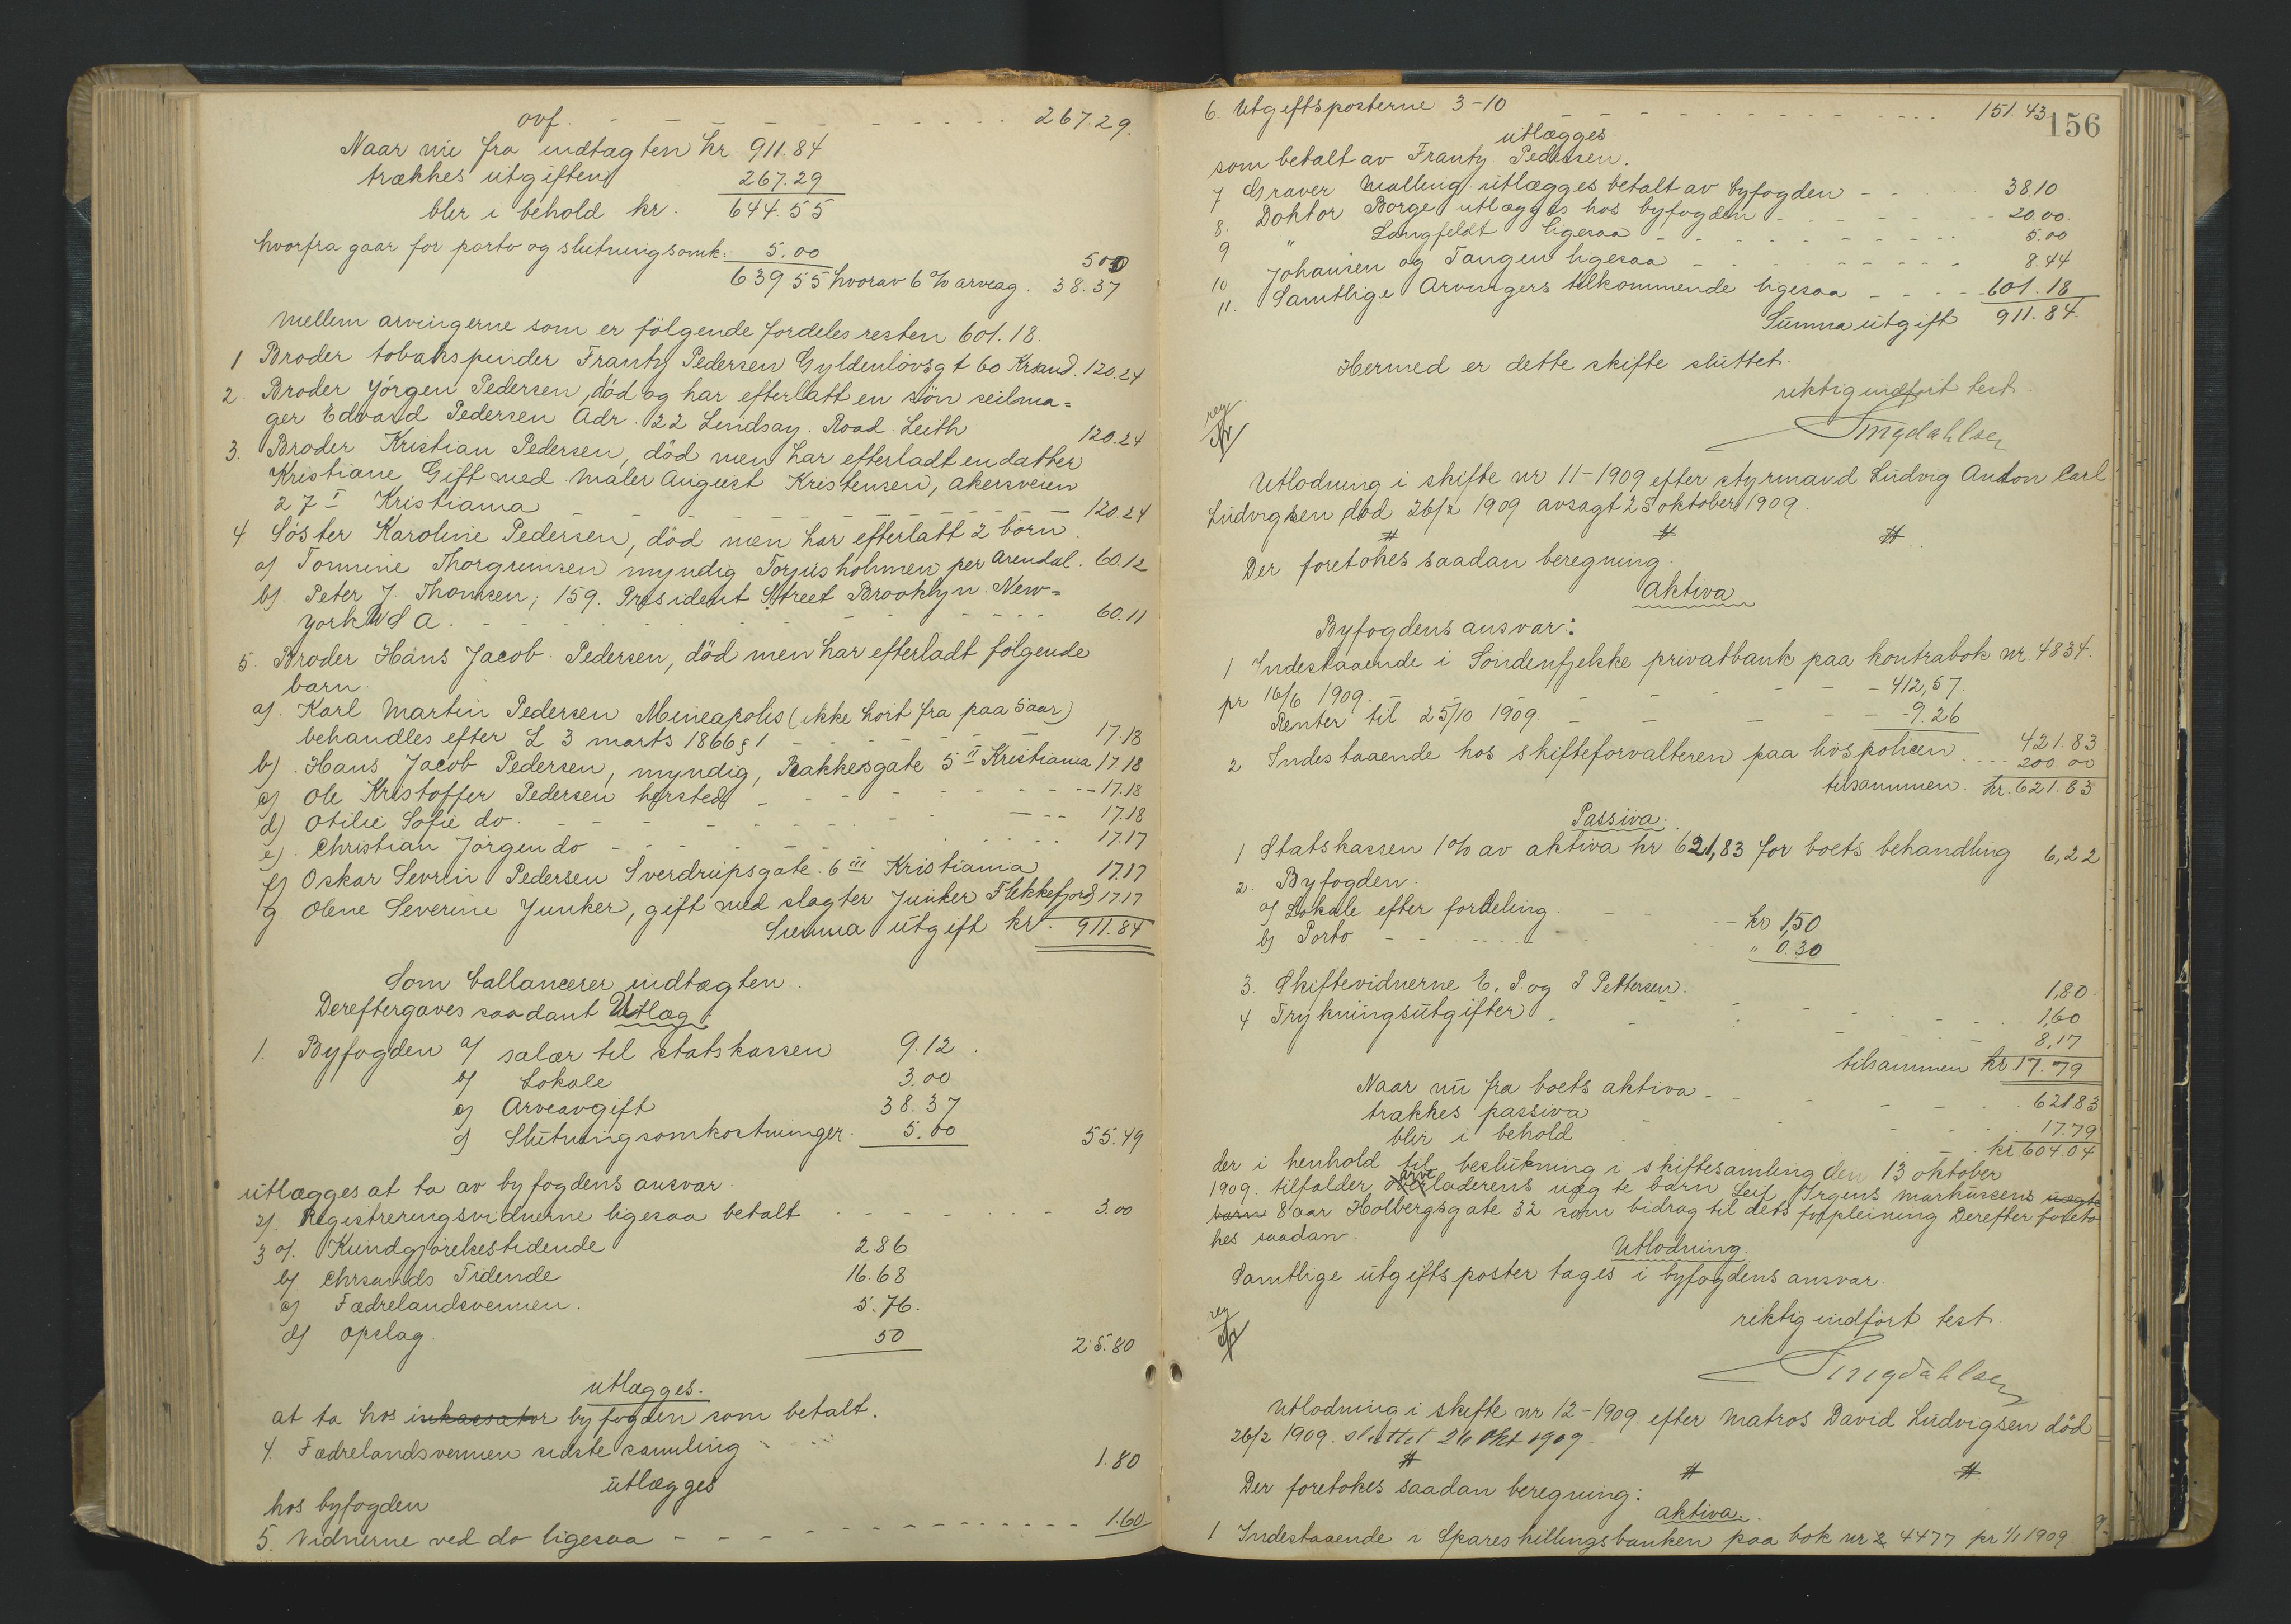 ovf. 267.29.
Naar nu fra indtægten kr. 911.84
trækkes utgiften 267.29
blir i behold kr. 644.55
hvorfra gaar for porto og slutningsomk. 5.00 5 00
639 55 hvorav 6 % arveag. 38.37
Mellem arvingerne som er följende fordeles resten 601.18.
1 Broder tobakspinder Frantz Pedersen Gyldenlövsgt 60 Krsand. 120.24
2. Broder Jörgen Pedersen, död og har efterlatt en sön seilma=
ger Edvard Pedersen Adr. 22 Lindsay. Road. Leith 120.24
3. Broder Kristian Pedersen, död men har efterladt en datter
Kristiane Gift med Maler August Kristensen, akersveien
27 I Kristiania 120.24
4 Söster Karoline Pedersen, död men har efterlatt 2 börn.
a) Tomine Thorgrimsen myndig Torjusholmen per Arendal. 60.12
b). Peter J. Thomsen, 159. President Street Brooklyn. New=
york U S A. 60.11
5. Broder Hans Jacob Pedersen, död men har efterladt fölgende
barn.
a). Karl Martin Pedersen Mineapolis (ikke hört fra paa 5 aar)
behandles efter L 3 marts 1866 § 1 17.18
b). Hans Jacob Pedersen, myndig, Bakkesgate 5 II Kristiania 17.18
c) Ole Kristoffer Pedersen hersteds 17.18
d) Otilie Sofie do. 17.18
e). Christian Jörgen do 17.17
f) Oskar Sevrin Pedersen Sverdrupsgate. 6 III Kristiania 17.17
g Olene Severine Junker, gift med slagter Junker Flekkefjord 17.17
Summa utgift kr. 911.84
Som ballancerer indtægten.
Dereftergaves saadant Utlæg.
1. Byfogden a) salær til statskassen 9.12.
b) Lokale 3.00
c) Arveavgift 38.37
d) Slutningsomkostninger. 5.00 55.49
utlægges at ta av byfogdens ansvar.
2). Registreringsvidnerne ligesaa betalt 3.00
3 a). Kundgjörelsestidende 2 86
b). Chrsands Tidende 16.68
c) Fædrelandsvennen. 5.76.
d) opslag. 50 25.80
utlægges.
at ta hos inkassator byfogden som betalt.
4. Fædrelandsvennen sidste samling 1.80
utlægges
hos byfogden
5. Vidnerne ved do ligesaa 1.60
156
6. Utgiftsposterne 3-10 151.43
utlægges.
som betalt av Frantz Pedersen.
7 Graver Malling utlægges betalt av byfogden 38 10
8. Doktor Borge utlægges hos byfogden 20.00.
9 " Langfeldt ligesaa 5.00
10 Johansen og Tangen ligesaa 8.44
11. Samtlige Arvingers tilkommende ligesaa 601.18
Summa utgift 911.84.
Hermed er dette skifte sluttet.
riktig indfört test.
reg
Utlodning i skifte nr 11-1909 efter styrmand Ludvig Anton Carl
Ludvigsen död 26/2 1909 avsagt 25 oktober 1909.
Der foretokes saadan beregning.
Aktiva.
Byfogdens ansvar:
1 Indestaaende i Söndenfjelske privatbank paa kontrabok nr. 4834.
pr 16/6 1909. 412,57.
Renter til 25/10 1909. 9.26
421.83
2 Indestaaende hos skifteforvalteren paa hospolicen 200 00
tilsammen. kr. 621.83
Passiva.
1 Statskassen 1 % av aktiva kr 621,83 for boets behandling 6,22
2. Byfogden.
a) Lokale efter fordeling. kr 1,50
b) Porto " 0.30
1,80.
3. Skiftevidnerne E. P. og S Pettersen. 1,60
4 Trykningsutgifter 8,17
tilsammen kr 17.79
Naar nu fra boets aktiva 621 83
trækkes passiva 17.79
blir i behold kr 604.04
der i henhold til beslutning i skiftesamling den 13 oktober
1909. tilfalder arveladerens uæg te barn Leif Irgens Markussens uægte
barn 8 aar Holbergsgate 32 som bidrag til dets forpleining Derefter foreto
kes saadan.
Utlodning.
Samtlige utgiftsposter tages i byfogdens ansvar.
riktig indfört test.
reg
Utlodning i skifte nr 12-1909. efter Matros David Ludvigsen död
26/2 1909. sluttet 26 Okt 1909.
Der foretokes saadan beregning:
aktiva.
1 Indestaaende i Spareskillingsbanken paa bok nr 4477 pr 1/1 1909